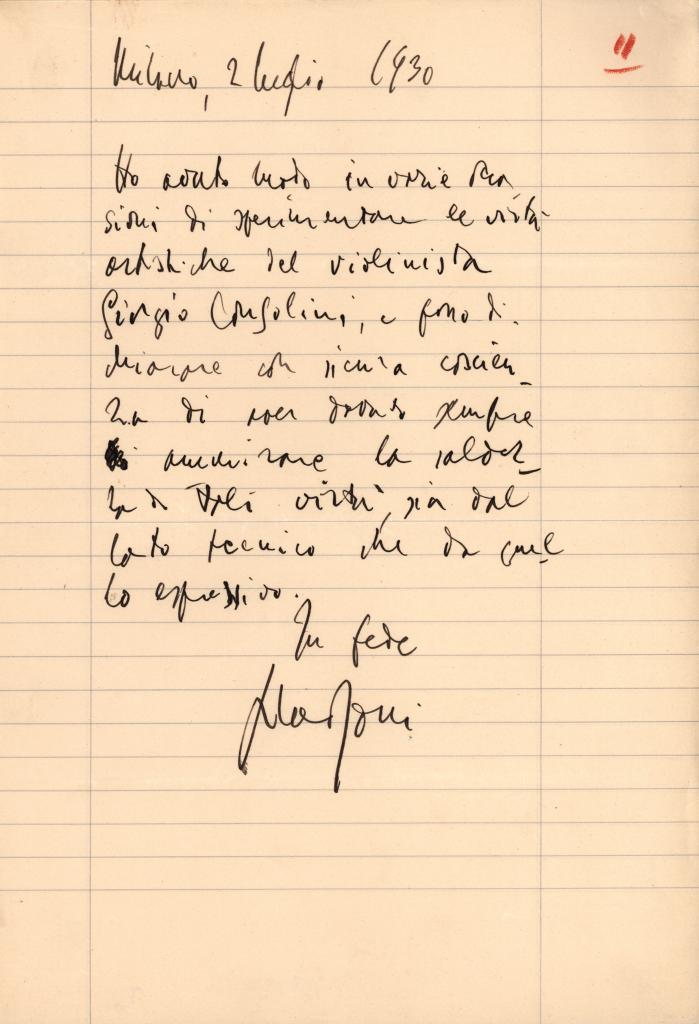 11
Milano, 2 luglio 1930
Ho avuto modo in varie occa
sioni di sperimentare le virtù
artistiche del violinista
Giorgio Consolini, e posso di-
chiarare con sicura coscien-
za di aver dovuto sempre
ammirare la saldez-
za di tali virtù, sia dal
lato tecnico che da quel
lo espressivo.
In fede